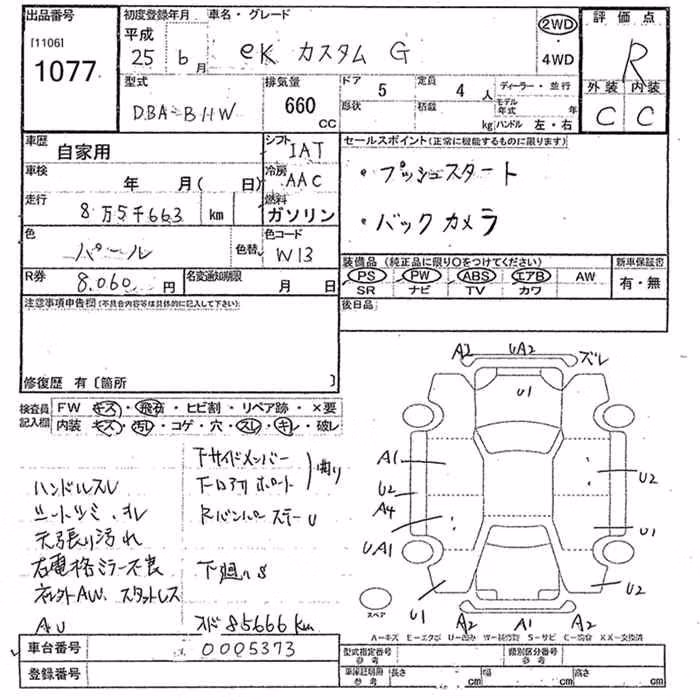 出品番号 初度登録年月 車名・グレード 評価点
[1106] 平成
1077 25 6月 eK カスタム G 2WD・4WD R
型式 排気量 ドア 5 定員 4人 ディーラー・並行 外装 内装
DBA-B11W 660 CC 形状 積載 kg モデル年式 年 ハンドル 左・右 C C
車歴 自家用 シフト IAT セールスポイント(正常に機能するものに限ります)
車検 年 月( 日) 冷房 AAC ・プッシュスタート
走行 8万5千663 km 燃料 ガソリン ・バックカメラ
色 パール 色替 色コード W13 装備品 (純正品に限り○をつけてください) 新車保証書
R券 8.060円 名変通知期限 月 日 PS PW ABS エアB AW 有・無
SR ナビ TV カワ
注意事項申告欄(不具合内容等は具体的に記入して下さい) 後日品
修復歴 有〔箇所 〕
検査員記入欄 FW キズ・飛石・ヒビ割・リペア跡・×要
内装 キズ・汚レ・コゲ・穴・スレ・キレ・破レ
A2 UA2 ズレ
U1
A1 U2
U2
A4
UA1 U1
U1 U2
A2 A1 A2
スペア
下サイドメンバー
曲り
ハンドルスレ
シートシミ.
天張り汚れ
Rバンパ ステー U
右電格ミラー不良
下廻りS
社外AW. スタットレス
AU
85666 km
A−キズ E−エクボ U−凹み W−補修跡 S−サビ C−腐食 XX−交換済
車台番号 0005373 型式指定番号 参考 類別区分番号 参考
登録番号 車庫証明用 参考 長さ cm 幅 cm 高さ cm